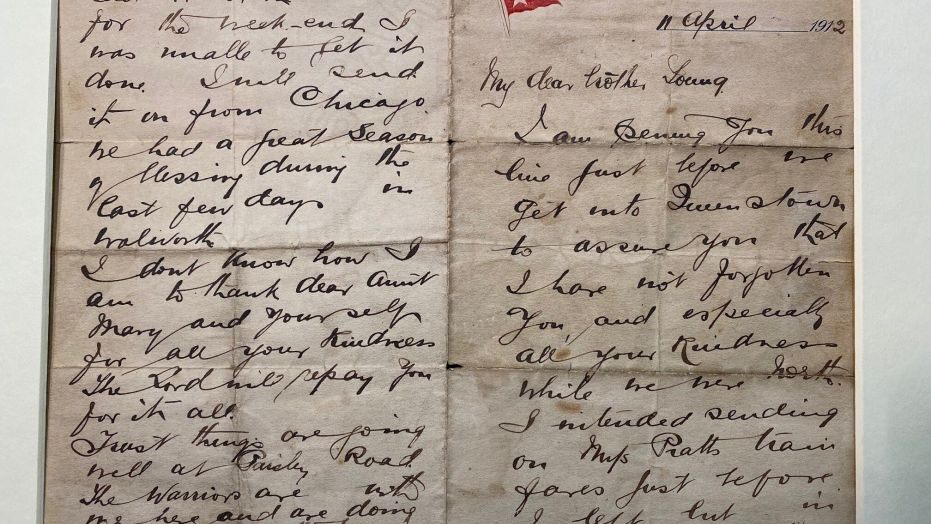 11 April 1912
My dear brother Young
I am penning you this
line just before we
get into Queenstown
to assure you that
I have not forgotten
you and especially
all your Kindness
while we were North.
I intended sending
on Miss Pratts train
fares just before
I left but in
for the week-end I
was unable to get it
done. I will send
it on from Chicago
we had a great season
of blessing during the
last few days in
Walworth
I dont Know how I
am to thank dear Aunt
Mary and Yourself
for all your Kindness
The Lord will repay You
for it all.
Trust things are going
well at Paisley Road.
The Warriors are with
me here and are doing